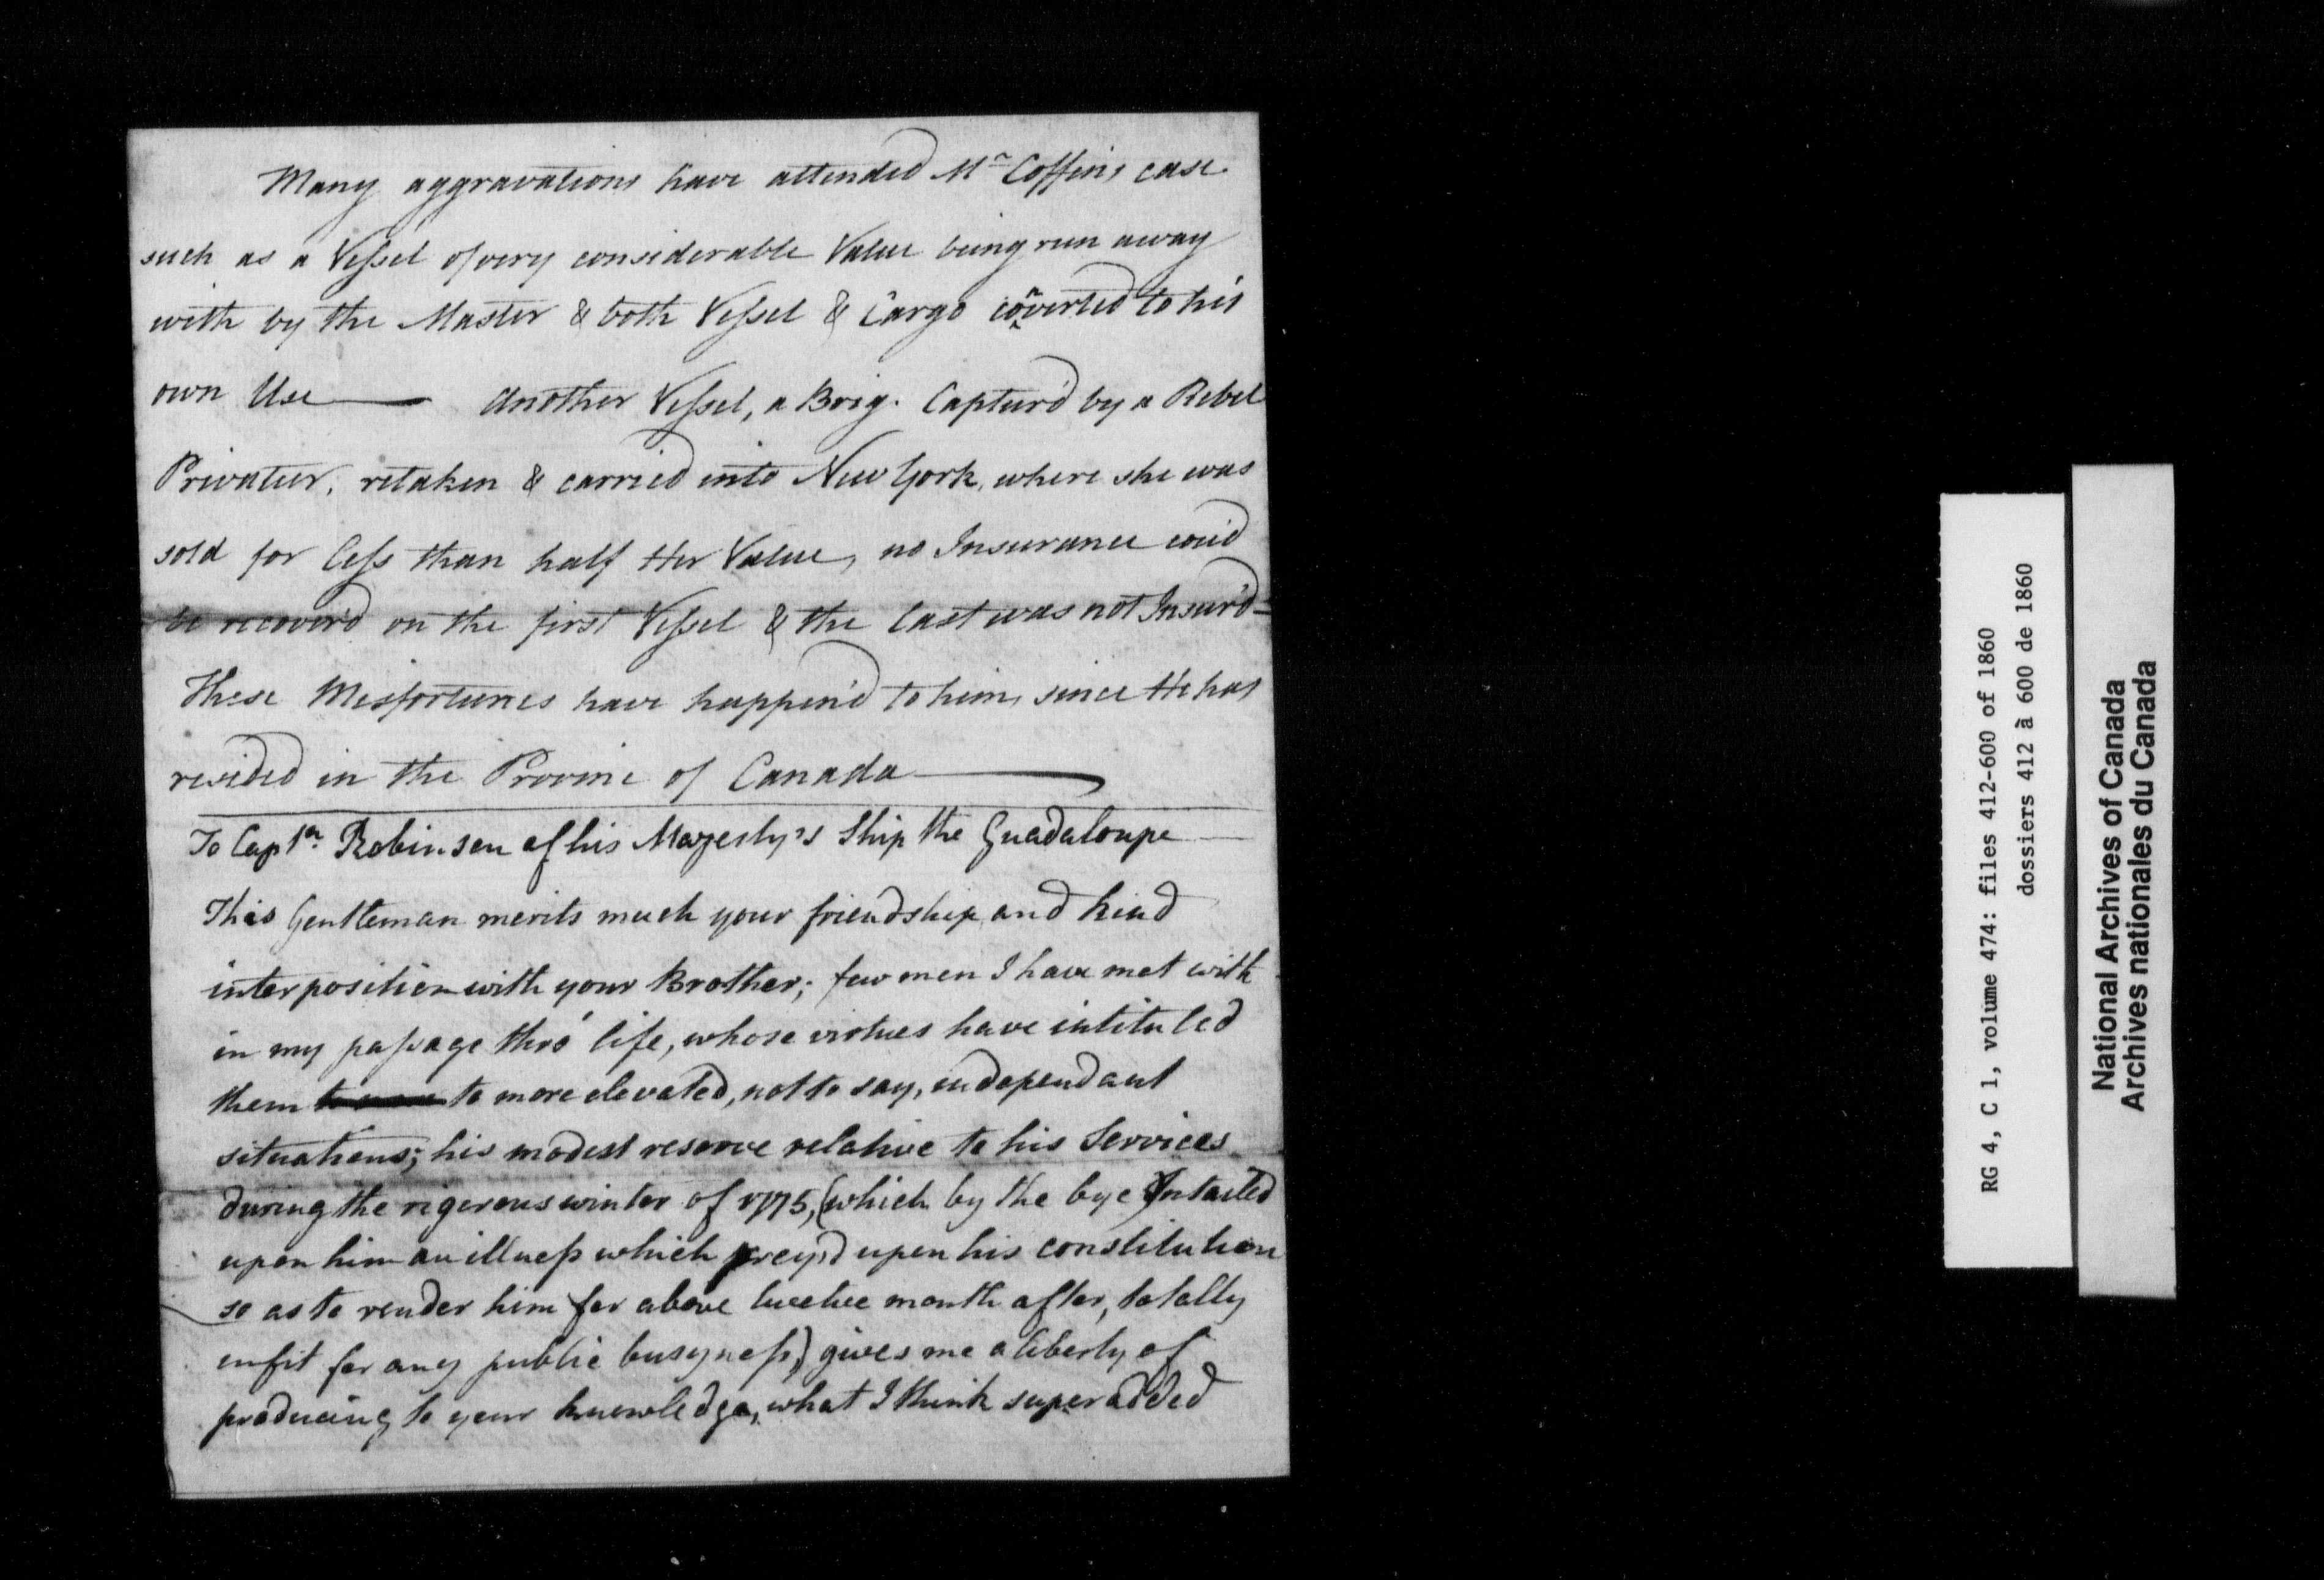 Many aggravations have attended Mr Coffins case
such as a Vessel of very considerable Value being run away
with by the Master & both Vessel & Cargo converted to his
own Use —— Another Vessel, a Brig. Captur'd by a Rebel
Privateer, retaken & carried into New York, where she was
sold for less than half Her Value, no Insurance cou'd
be recover'd on the first Vessel & the last was not Insur'd -
These Misfortunes have happen'd to him, since He has
resided in the Province of Canada ——
To Captn. Robinson of his Majesty's Ship the Guadaloupe —
This Gentleman merits much your friendship and kind
interposition with your Brother; few men I have met with
in my passage thro' life, whose virtues have intituled
them to more elevated, not to say, independant
situations; his modest reserve relative to his Services
during the rigorous winter of 1775, (which by the bye Intailed
upon him an illness which prey'd upon his constitution
so as to render him for above twelve month after, totally
unfit for any public busyness,) gives me a liberty of
producing to your knowledge, what I think superadded
RG 4, C 1, volume 474: files 412-600 of 1860
dossiers 412 à 600 de 1860
National Archives of Canada
Archives nationales du Canada